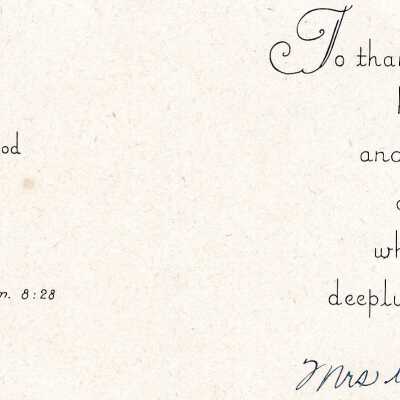 od
n. 8:28
To than
and
wh
deeply
Mrs